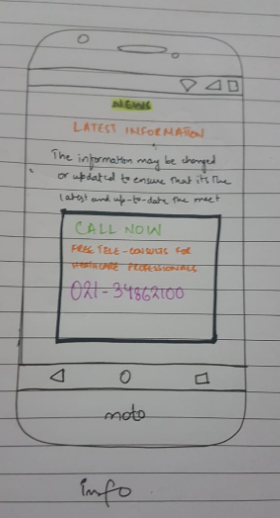 NEWS
LATEST INFORMATION
The information may be changed
or updated to ensure that its the
latest and up-to-date the meet
CALL NOW
FREE TELE-CONSULTS FOR
HEATHCARE PROFESSIONALS
021-34862100
moto
info